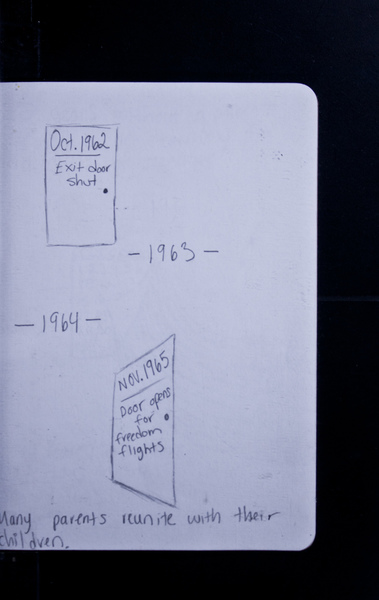 Oct. 1962
Exit door
shut
- 1963 -
- 1964 -
Nov. 1965
Door opens
for
freedom
flights
Many parents reunite with their
children.